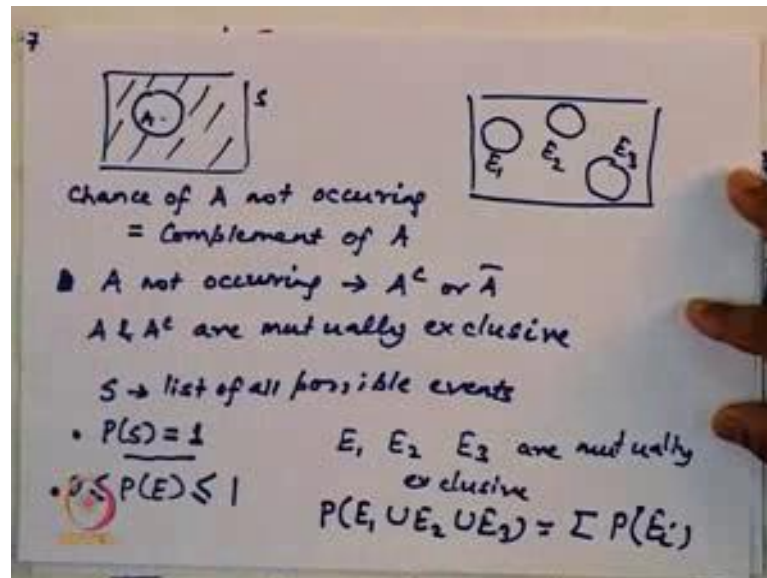 7
A
S
E₁
E₂
E₃
Chance of A not occuring
= Complement of A
A not occuring → Aᶜ or A̅
A & Aᶜ are mutually exclusive
S → list of all possible events
• P(S) = 1
• 0 ≤ P(E) ≤ 1
E₁ E₂ E₃ are mutually
exclusive
P(E₁ ∪ E₂ ∪ E₃) = Σ P(Eᵢ)